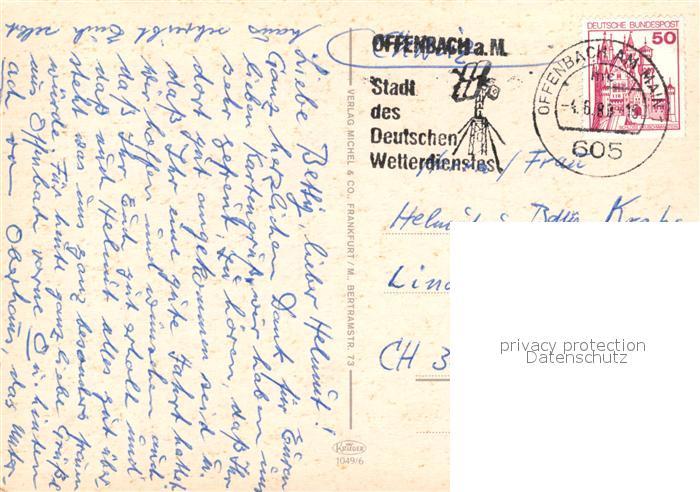 Liebe Betty, lieber Helmut!
Ganz herzlichen Dank für Euren
lieben Kartengruß, wir haben uns
sehr gefreut zu hören, daß Ihr
dort gut angekommen seid u.
daß Ihr eine gute Fahrt hattet.
Wir hoffen und wünschen auch
daß Ihr Euch gut erholt und
daß auch Helmut alles gut über-
steht was uns ganz besonders freuen
würde. Für heute ganz liebe Grüße
aus Offenbach vorne O u. hinten
ach von
schreibt Euch
VERLAG MICHEL & CO., FRANKFURT/M., BERTRAMSTR. 73
KRÜGER
1049/6
OFFENBACH a. M.
Stadt
des
Deutschen
Wetterdienstes
DEUTSCHE BUNDESPOST
50
OFFENBACH AM MAIN
605
Schweiz
/ Frau
Helmut u. Betty
CH 3
privacy protection
Datenschutz